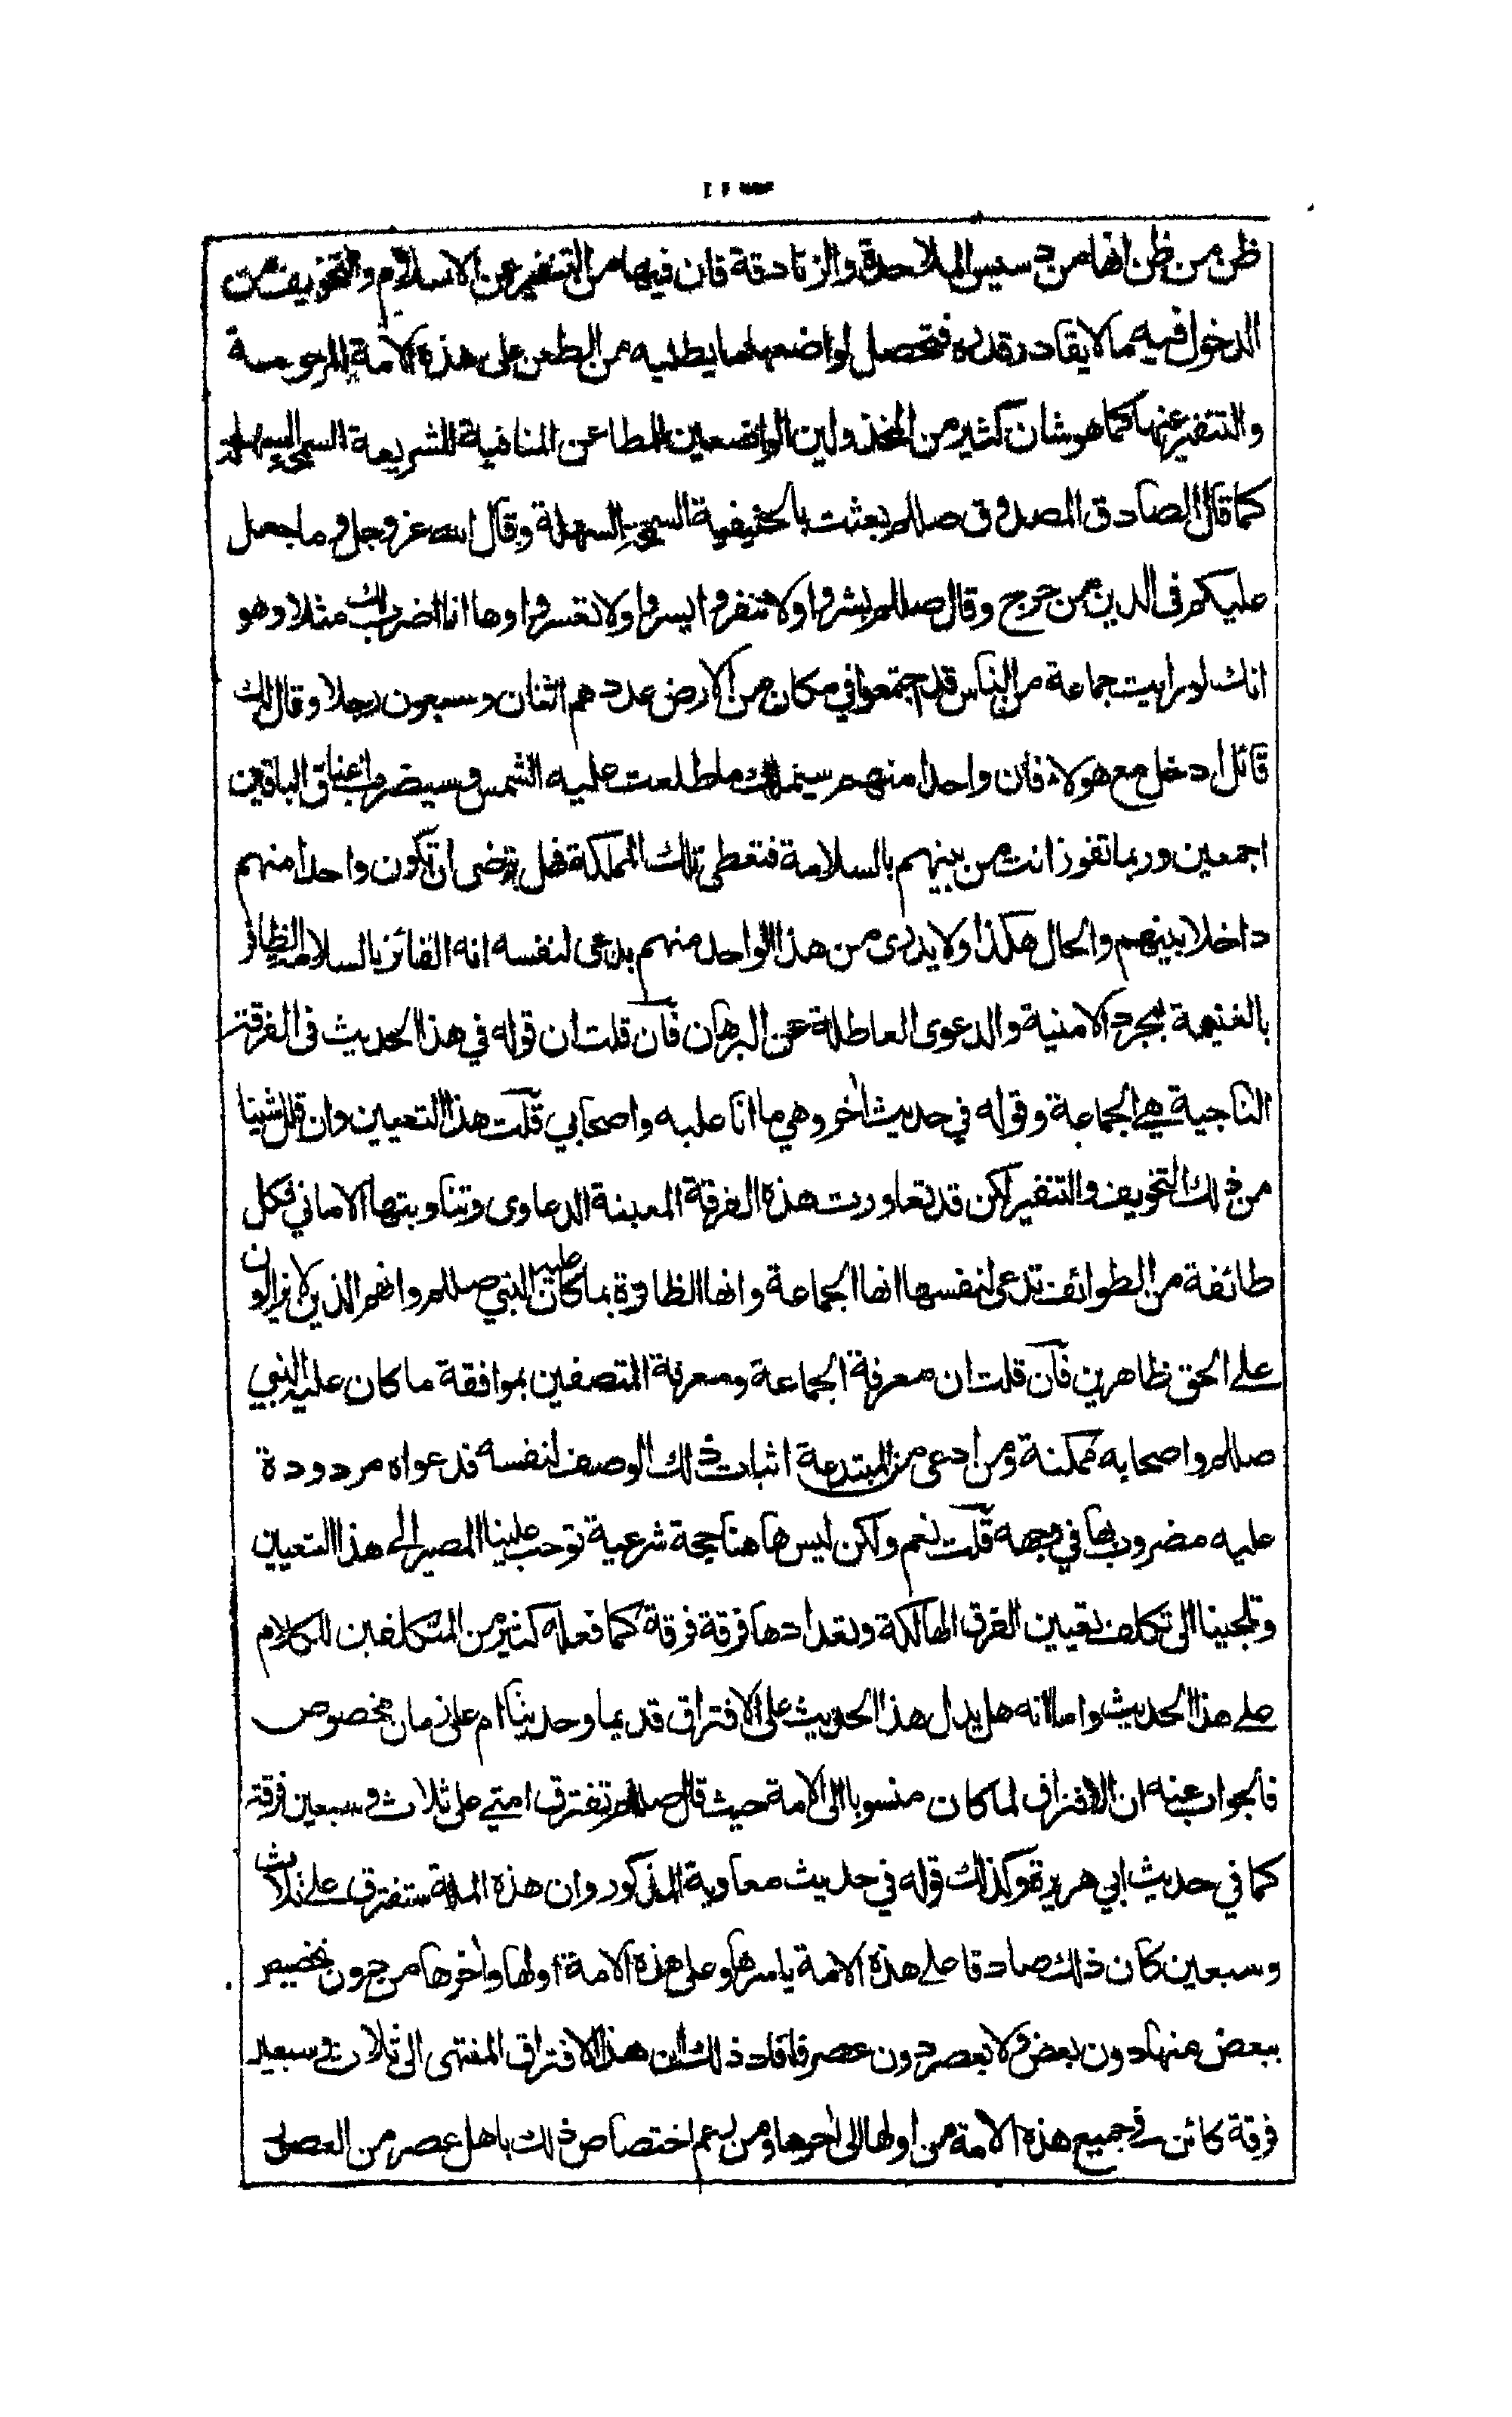 ظن من ظن انها من دسيس الملاحدة والزنادقة فان فيها من التنفير عن الاسلام والتخويف من
الدخول فيه ما لا يقادر قدره فتحصل لواضعها ما يطلبه من الطعن على هذه الامة المرحومة
والتنفير عنها كما هو شان كثير من المخذولين الواضعين للمطاعن المنافية للشريعة السمحة السهلة
كما قال الصادق المصدوق صللم بعثت بالحنيفية السمحة السهلة وقال الله عز وجل وما جعل
عليكم في الدين من حرج وقال صللم بشروا ولا تنفروا يسروا ولا تعسروا وها انا اضرب لك مثلا وهو
انك لو رايت جماعة من الناس قد اجتمعوا في مكان من الارض عددهم اثنان وسبعون رجلا وقال لك
قائل ادخل مع هولاء فان واحدا منهم سيملك ما طلعت عليه الشمس وسيضرب اعناق الباقين
اجمعين وربما تفوز انت من بينهم بالسلامة فتعطى تلك المملكة فهل ترضى ان تكون واحدا منهم
داخلا بينهم والحال هكذا ولا يدرى من هذا الواحد منهم يدعى لنفسه انه الفائز بالسلامة الظافر
بالغنيمة بمجرد الامنية والدعوى العاطلة عن البرهان فان قلت ان قوله في هذا الحديث في الفرقة
الناجية هي الجماعة وقوله في حديث اخر وهي ما انا عليه واصحابي قلت هذا التعيين وان قلل شيئا
من ذلك التخويف والتنفير لكن قد تعاورت هذه الفرقة المعينة الدعاوى وتناوبتها الاماني فكل
طائفة من الطوائف تدعى لنفسها انها الجماعة وانها الظافرة بما كان عليه النبي صللم وانهم الذين لا يزالون
على الحق ظاهرين فان قلت ان معرفة الجماعة ومعرفة المتصفين بموافقة ما كان عليه النبي
صللم واصحابه ممكنة ومن ادعى من المبتدعة اثبات ذلك الوصف لنفسه فدعواه مردودة
عليه مضروب بها في وجهه قلت نعم ولكن ليس ها هنا حجة شرعية توجب علينا المصير الى هذا التعيين
وتلجينا الى تكلف تعيين الفرق الهالكة وتعدادها فرقة فرقة كما فعله كثير من المتكلفين للكلام
على هذا الحديث واما انه هل يدل هذا الحديث على الافتراق قديما وحديثا ام على زمان مخصوص
فالجواب عنه ان الافتراق لما كان منسوبا الى الامة حيث قال صللم تفترق امتي على ثلاث وسبعين فرقة
كما في حديث ابي هريرة وكذلك قوله في حديث معاوية المذكور وان هذه الملة ستفترق على ثلاث
وسبعين كان ذلك صادقا على هذه الامة باسرها وعلى هذه الامة اولها واخرها من دون تخصيص
ببعض منها دون بعض ولا بعصر دون عصر فافاد ذلك ان هذا الافتراق المنتهى الى ثلاث وسبعين
فرقة كائن في جميع هذه الامة من اولها الى اخرها ومن زعم اختصاص ذلك باهل عصر من العصور